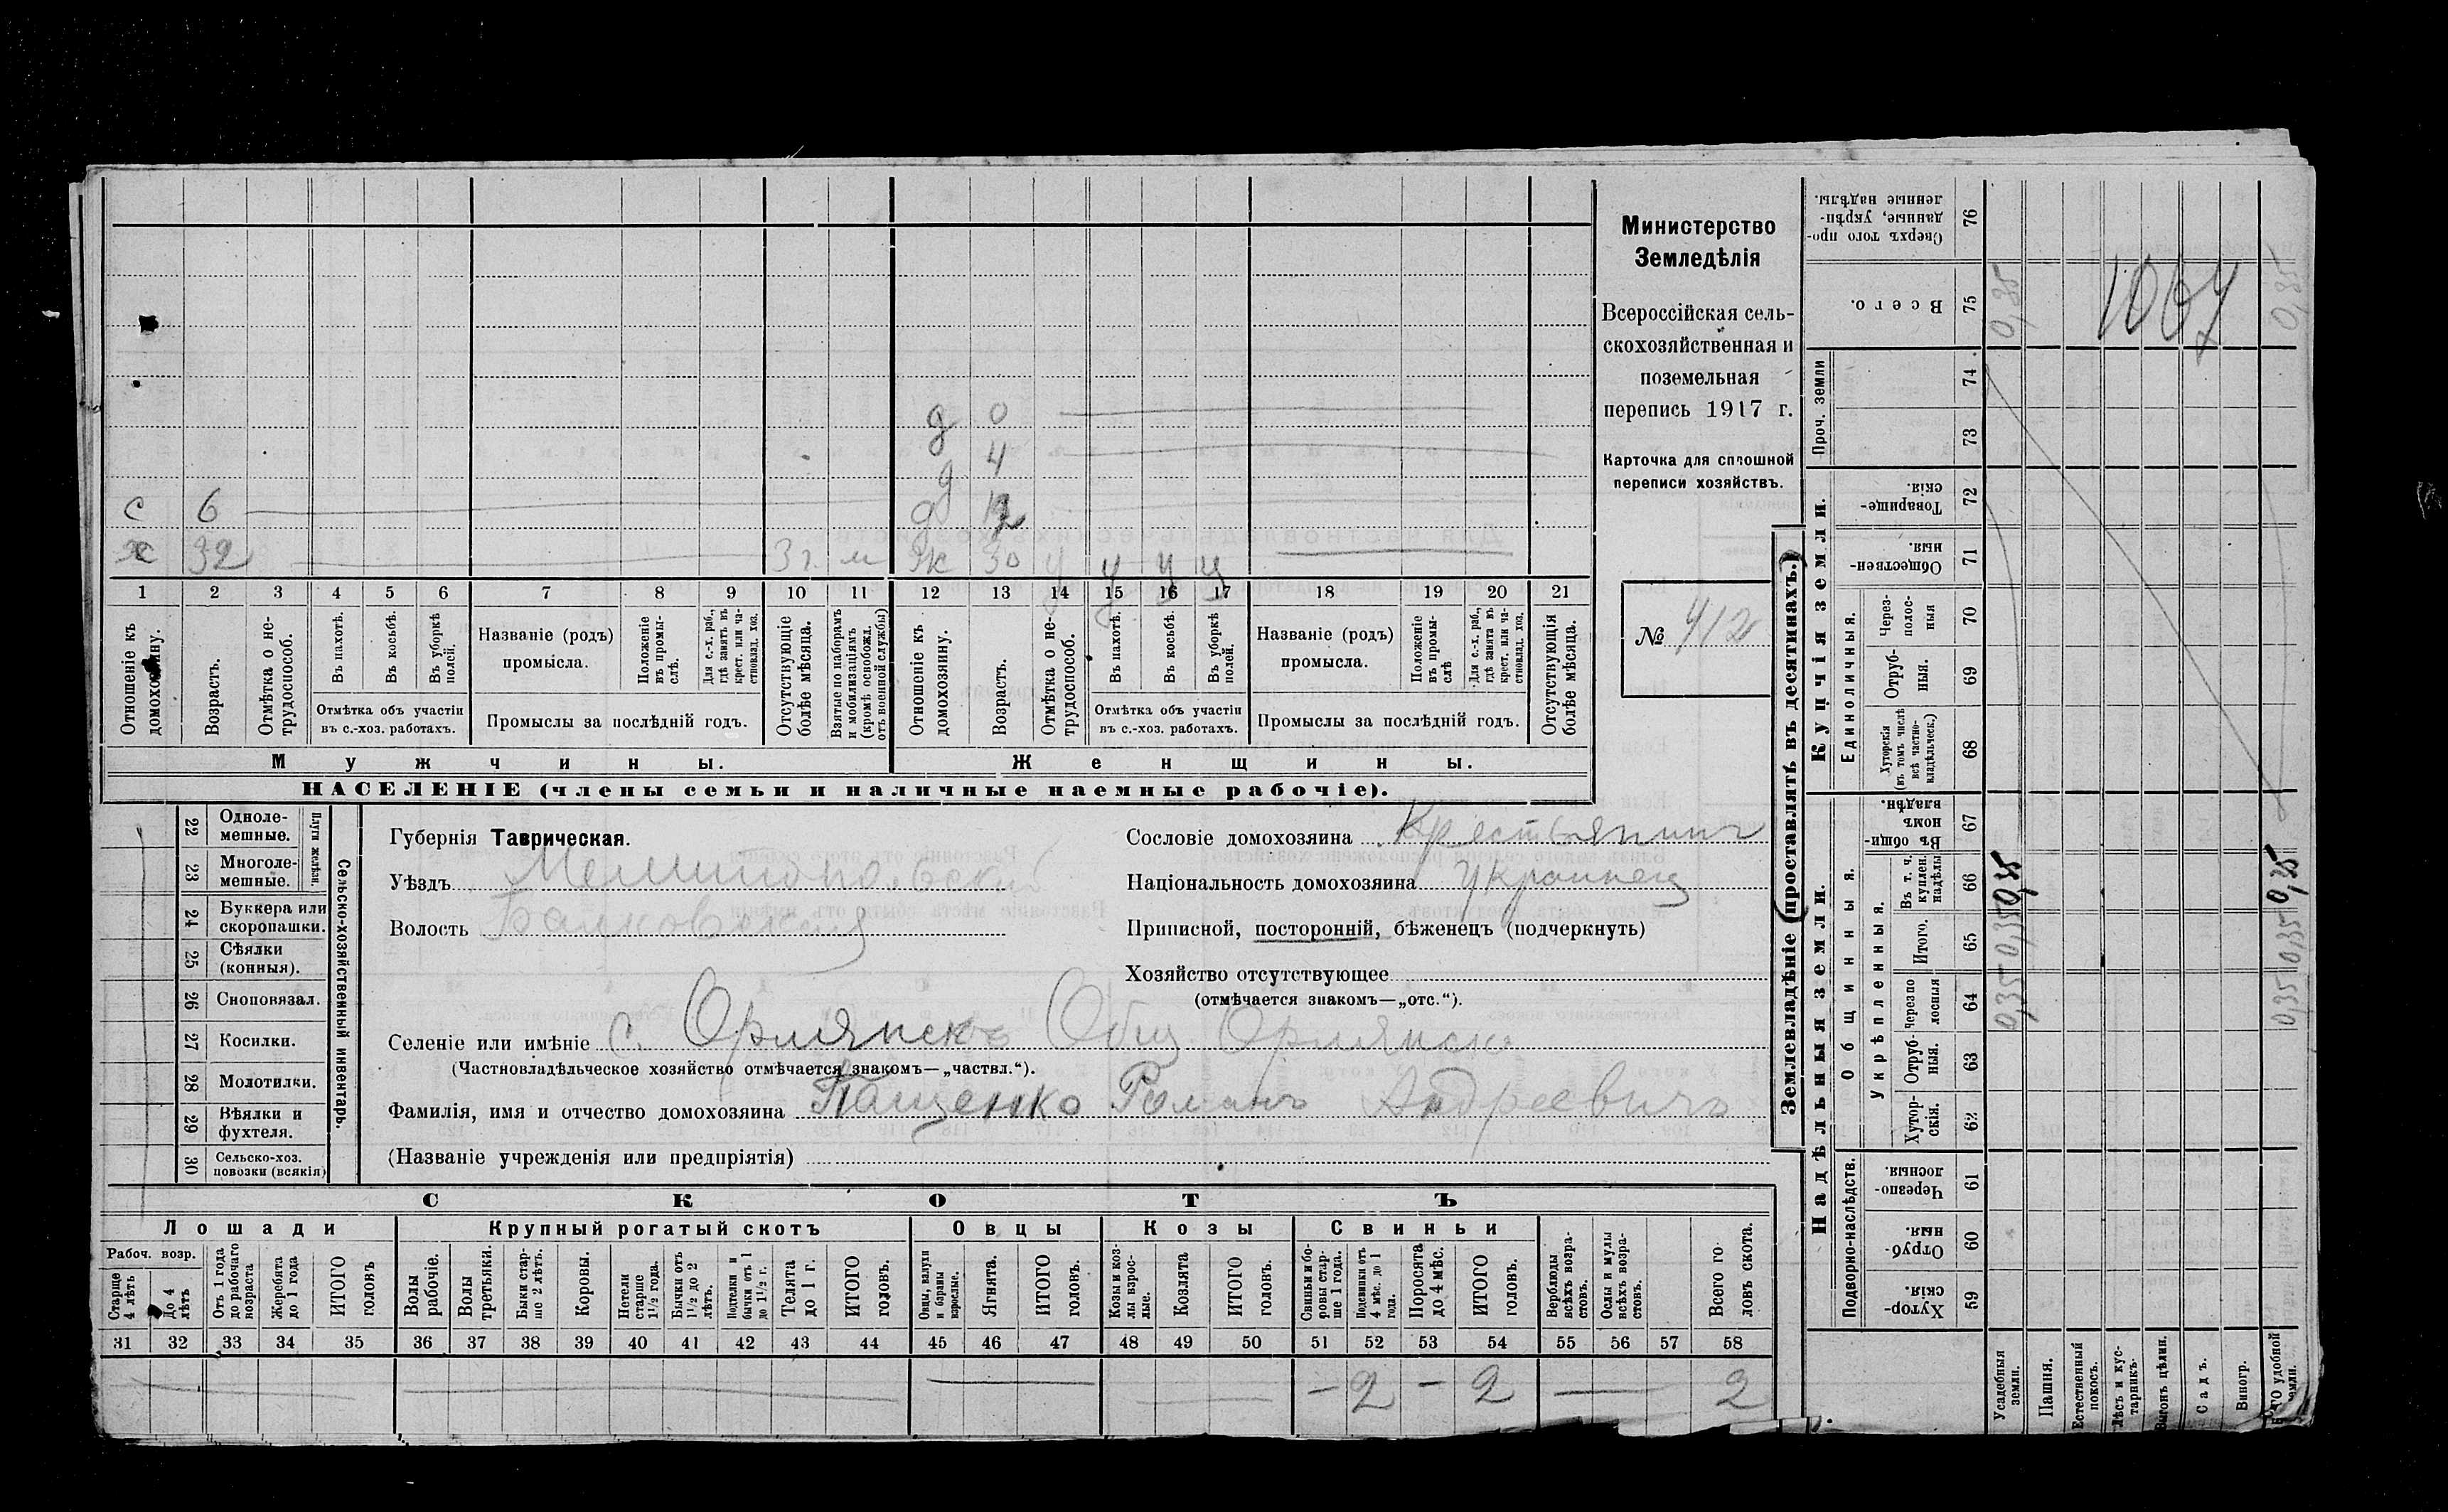 Министерство
Земледѣлія
Всероссійская сель-
скохозяйственная и
поземельная
перепись 1917 г.
Карточка для сплошной
переписи хозяйствъ.
№ 412
д 0
д 4
с 6
д
х 32 3 г. м ж 30 у у у у
1 2 3 4 5 6 7 8 9 10 11 12 13 14 15 16 17 18 19 20 21
Отношеніе къ домохозяину.
Возрастъ.
Отмѣтка о не-трудоспособ.
Въ пахотѣ.
Въ косьбѣ.
Въ уборкѣ полей.
Отмѣтка объ участіи
въ с.-хоз. работахъ.
Названіе (родъ)
промысла.
Положеніе въ промы-слѣ.
Для с.-х. раб., гдѣ занятъ въ крест. или ча-стновлад. хоз.
Промыслы за послѣдній годъ.
Отсутствующіе болѣе мѣсяца.
Взятые по наборамъ и мобилизаціямъ (кромѣ освобожд. отъ военной службы)
Отношеніе къ домохозяину.
Возрастъ.
Отмѣтка о не-трудоспособ.
Въ пахотѣ.
Въ косьбѣ.
Въ уборкѣ полей.
Отмѣтка объ участіи
въ с.-хоз. работахъ.
Названіе (родъ)
промысла.
Положеніе въ промы-слѣ
Для с.-х. раб., гдѣ занята въ крест. или ча-стновлад. хоз.
Промыслы за послѣдній годъ.
Отсутствующія болѣе мѣсяца.
Мужчины.
Женщины.
НАСЕЛЕНІЕ (члены семьи и наличные наемные рабочіе).
22 Одноле-мешные.
23 Многоле-мешные.
Плуги желѣзн.
24 Буккера или скоропашки.
25 Сѣялки (конныя).
26 Сноповязал.
27 Косилки.
28 Молотилки.
29 Вѣялки и фухтеля.
30 Сельско-хоз. повозки (всякія)
Сельско-хозяйственный инвентарь.
Губернія Таврическая.
Уѣздъ Мелитопольский
Волость Балковская
Сословіе домохозяина Крестьянинъ
Національность домохозяина Украинец
Приписной, посторонній, бѣженецъ (подчеркнуть)
Хозяйство отсутствующее
(отмѣчается знакомъ—„отс.“).
Селеніе или имѣніе с. Орлянскъ Общ Орлянск.
(Частновладѣльческое хозяйство отмѣчается знакомъ—„частвл.“).
Фамилія, имя и отчество домохозяина Пащенко Романъ Андреевичъ
(Названіе учрежденія или предпріятія)
СКОТЪ
Лошади Крупный рогатый скотъ Овцы Козы Свиньи
Рабоч. возр.
Старше 4 лѣтъ
До 4 лѣтъ
Отъ 1 года до рабочаго возраста
Жеребята до 1 года
ИТОГО головъ
Волы рабочіе.
Волы третьяки.
Быки стар-ше 2 лѣтъ.
Коровы.
Нетели старше 1½ года.
Бычки отъ 1½ до 2 лѣтъ.
Подтелки и бычки отъ 1 до 1½ г.
Телята до 1 г.
ИТОГО головъ.
Овцы, валухи и бараны взрослые.
Ягнята.
ИТОГО головъ.
Козы и коз-лы взрос-лые.
Козлята
ИТОГО головъ.
Свиньи и бо-ровы стар-ше 1 года.
Подсвинки отъ 4 мѣс. до 1 года.
Поросята до 4 мѣс.
ИТОГО головъ.
Верблюды всѣхъ возра-стовъ.
Ослы и мулы всѣхъ возра-стовъ.
Всего го-ловъ скота.
31 32 33 34 35 36 37 38 39 40 41 42 43 44 45 46 47 48 49 50 51 52 53 54 55 56 57 58
— 2 — 2 — 2
Землевладѣніе (проставлять въ десятинахъ.)
Купчія земли.
Надѣльныя земли.
Сверхъ того про-данные, укрѣп-ленные надѣлы. 76
Всего. 75 0,35 0,35
1067
Проч. земли 74
73
Товарище-скія. 72
Обществен-ныя. 71
Единоличныя.
Через-полос-ныя 70
Отруб-ныя. 69
Хуторскія (въ томъ числѣ всѣ частно-владѣльческ.) 68
Общинныя.
Въ общи-номъ владѣн. 67
Укрѣпленныя.
Въ т. ч. куплен. надѣлы 66 0,35 0,35
Итого. 65 0,35 0,35
Черезпо-лосныя 64 0,35 0,35
Отруб-ныя. 63
Хутор-скія. 62
Подворно-наслѣдств.
Черезпо-лосныя. 61
Отруб-ныя. 60
Хутор-скія. 59
Усадебныя земли.
Пашня.
Естественный покосъ.
Лѣсъ и кус-тарникъ.
Выгонъ цѣлин.
Садъ.
Виногр.
удобной земли.